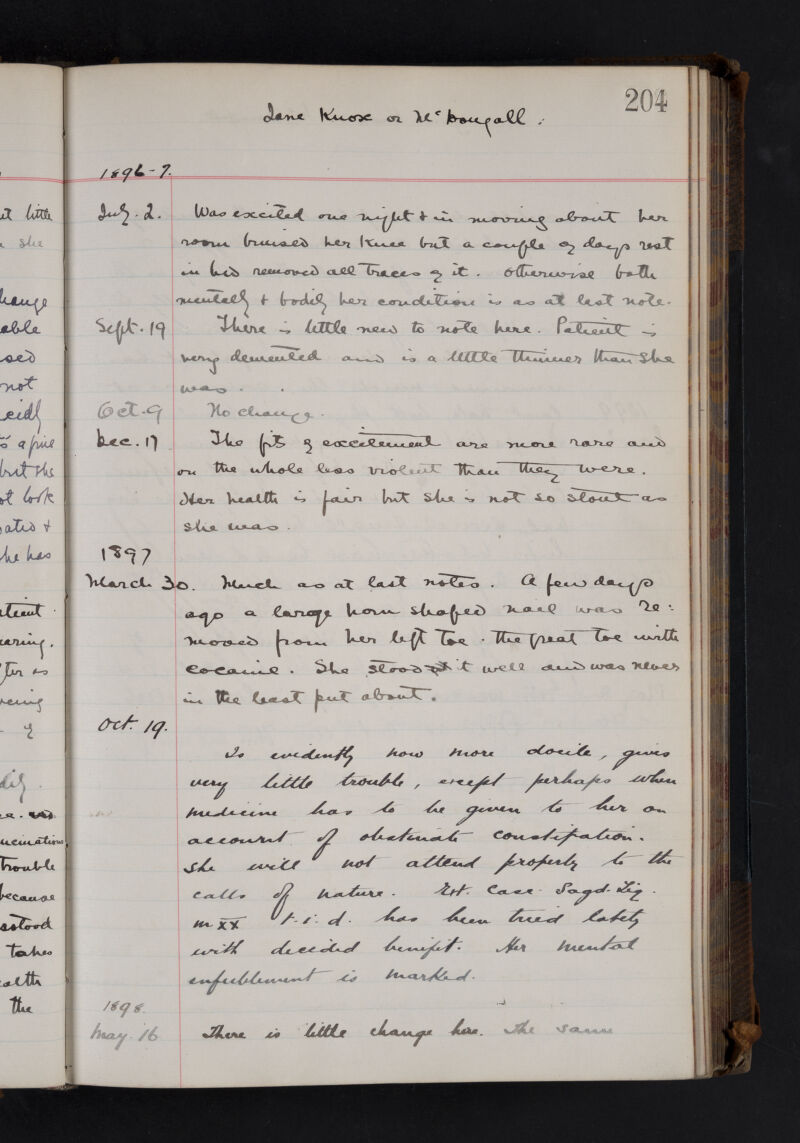 204
Jane Knox or McDougall.
1896-7.
July. 2. Was excited one night & in moving about her
room bruised her knee but a couple of days rest
in bed removed all traces of it. otherwise both
mentally & bodily her condition is as at last note.
Sept. 19 There is little new to note here. Patient is
very demented and is a little thinner than she
was.
Oct. 9 No change.
Dec. 17 The fits of excitement are more rare and
on the whole less violent than they were.
Her health is fair but she is not so stout as
she was.
1897
March 30. Much as at last notes. A few days
ago a large horn shaped nail was re:
moved from her left toe. the great toe with
cocaine. She stood it well and was never
in the least put about.
Oct. 19.
Is evidently now more docile, gives
very little trouble, except perhaps when
medicine has to be given to her on
account of obstinate constipation.
She will not attend properly to the
calls of nature. Ext. Casc. Sagd. Liq.
m xx t.i.d. has been tried lately
with decided benefit. Her mental
enfeeblement is marked.
1898.
May. 16 There is little change here. The same
ut little
she
hange
able
sed
not
a fine
but she
ot look
&
he has
atient
earing.
is
of
ucinations
trouble
because
stood
takes
ealth
the